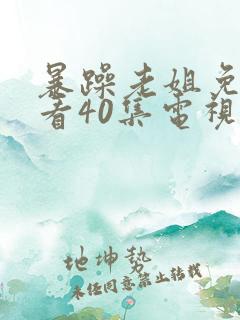 暴躁老姐免
看40集電視
地坤勢
未经同意禁止转载